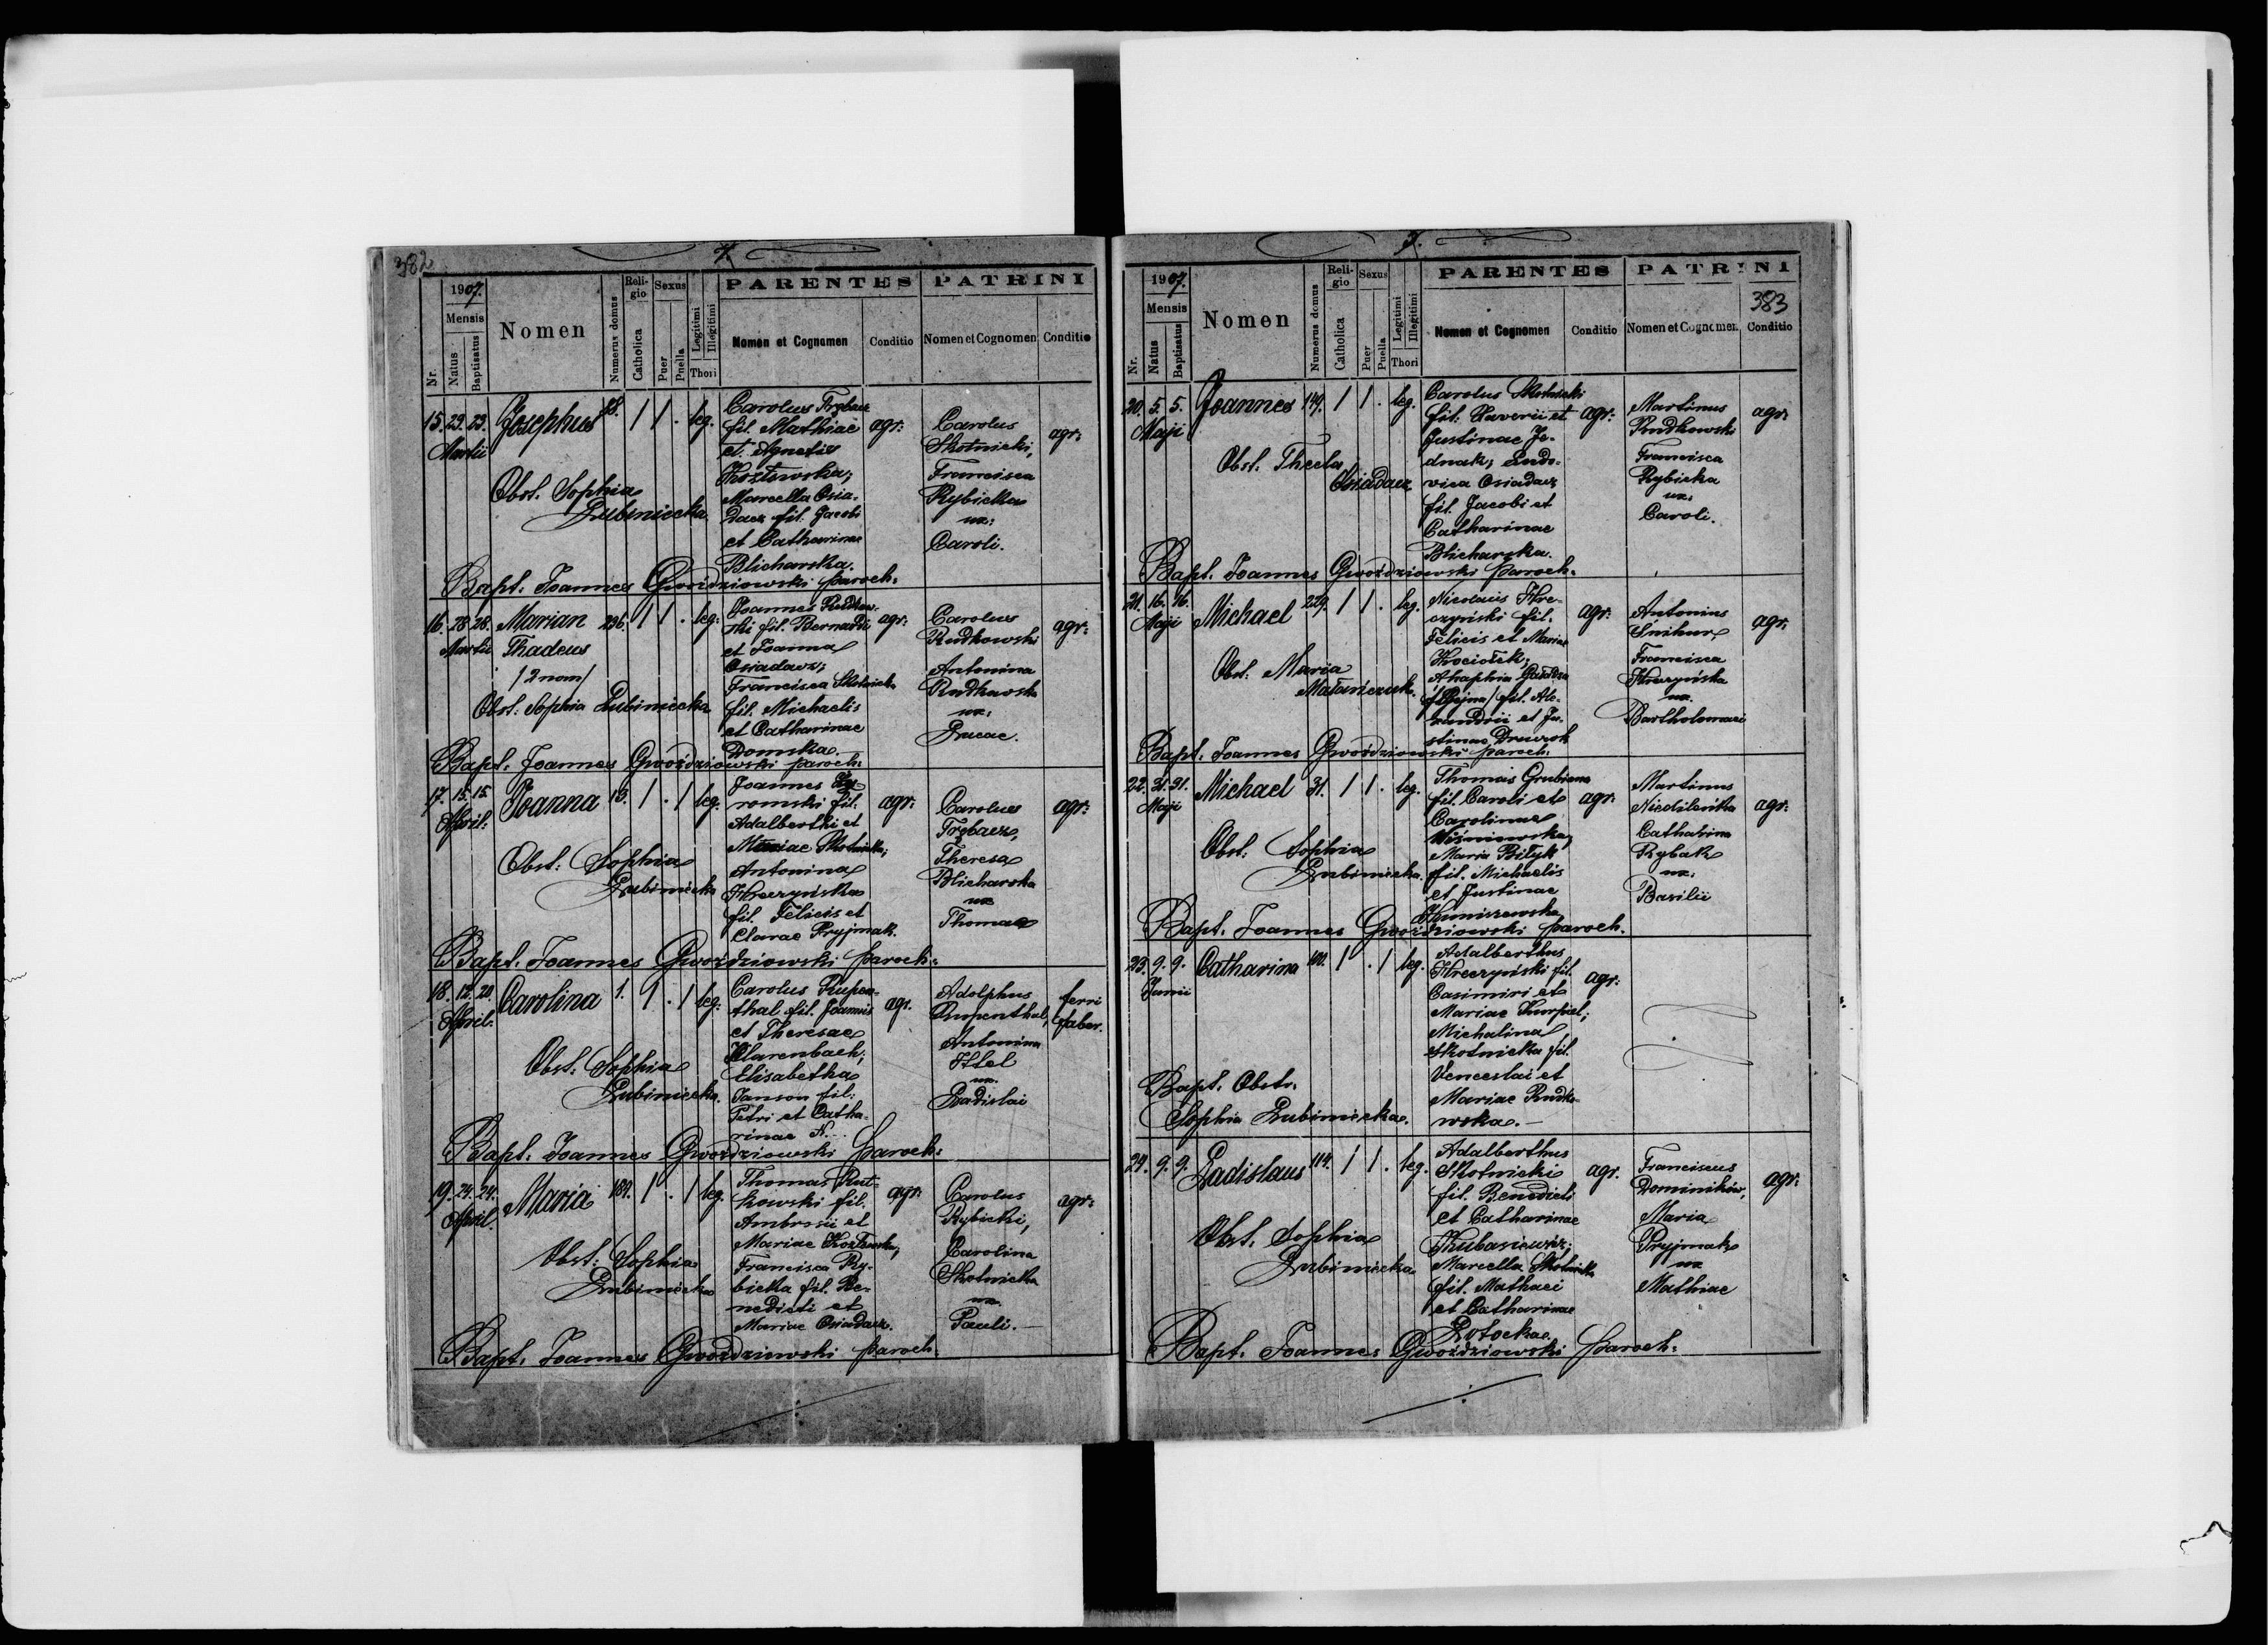 382
4.
1907.
Mensis
Nr.
Natus
Baptisatus
Nomen
Numerus domus
Religio
Catholica
Sexus
Puer
Puella
Legitimi
Illegitimi
Thori
PARENTES
Nomen et Cognomen
Conditio
PATRINI
Nomen et Cognomen
Conditio
15. 23. 23. Josephus 88. 1 1 . leg.
Martii
Obst. Sophia
Lubiniecka
Carolus Trębacz
fil. Mathiae
et Agnetis
Kozłowska;
Marcella Osia-
dacz fil. Jacobi
et Catharinae
Blicharska.
agr:
Carolus
Skotnicki,
Francisca
Rybicka
ux:
Caroli.
agr:
Bapt. Joannes Gwoździowski paroch:
16. 28. 28. Marian 296. 1 1 . leg:
Martii Thadeus
/2 nom/
Obst: Sophia Lubiniecka
Joannes Rudkow-
ski fil. Bernardi
et Joanna
Osiadacz;
Francisca Skotnicka
fil. Michaelis
et Catharinae
Domska.
agr:
Carolus
Rudkowski
Antonina
Rudkowska
ux:
Lucae.
agr:
Bapt. Joannes Gwoździowski paroch:
17. 15. 15. Joanna 13. 1 . 1 leg.
April:
Obst: Sophia
Lubiniecka
Joannes
romski fil.
Adalberthi et
Mariae Skotnicka;
Antonina
Hreczyńska
fil. Felicis et
Clarae Pryjmak.
agr:
Carolus
Trębacz,
Theresa
Blicharska
ux
Thomae
agr:
Bapt. Joannes Gwoździowski paroch:
18. 12. 20. Carolina 1. 1 . 1 leg:
April.
Obst. Sophia
Lubiniecka.
Carolus Rupen-
thal fil. Joannis
et Theresae
Klarenbach;
Elisabetha
Janson fil:
Petri et Catha-
rinae N.
agr.
Adolphus
Rupenthal,
Antonina
Ittel
ux.
Ladislai
ferri
faber.
Bapt. Joannes Gwoździowski paroch:
19. 24. 24. Maria 189. 1 . 1 leg.
April.
Obst: Sophia
Lubiniecka
Thomas Rut-
kowski fil.
Ambrosii et
Mariae Kozłowska;
Francisca Ry-
bicka fil. Be-
nedicti et
Mariae Osiadacz.
agr:
Carolus
Rybicki,
Carolina
Skotnicka
ux.
Pauli.
agr:
Bapt. Joannes Gwoździowski paroch.
5.
383
1907.
Mensis
Nr.
Natus
Baptisatus
Nomen
Numerus domus
Religio
Catholica
Sexus
Puer
Puella
Legitimi
Illegitimi
Thori
PARENTES
Nomen et Cognomen
Conditio
PATRINI
Nomen et Cognomen
Conditio
20. 5. 5. Joannes 149. 1 1 . leg.
Maji
Obst. Thecla
Osiadacz
Carolus Skotnicki
fil. Xaverii et
Justinae Je-
dnak; Ludo-
vica Osiadacz
fil. Jacobi et
Catharinae
Blicharska.
agr:
Martinus
Rudkowski
Francisca
Rybicka
ux:
Caroli.
agr:
Bapt. Joannes Gwoździowski paroch.
21. 16. 16. Michael 229. 1 1 . leg.
Maji
Obst: Maria
Nicolaus Hre-
czyński fil.
Felicis et Mariae
Kociołek;
Ahaphia
fil. Ale-
xandrii et Ju-
stinae
agr:
Antonius
Śnihur
Francisca
Hreczyńska
ux.
Bartholomaei
agr:
Bapt. Joannes Gwoździowski paroch.
22. 31. 31. Michael 31. 1 1 . leg.
Maji
Obst: Sophia
Lubiniecka.
Thomas
fil. Caroli et
Carolinae
Wiśniowska;
Maria Biłyk
fil. Michaelis
et Justinae
agr:
Martinus
Catharina
Rybak
ux:
Basilii
agr:
Bapt. Joannes Gwoździowski paroch.
23. 9. 9. Catharina 100. 1 . 1 leg.
Junii
Adalberthus
Hreczyński fil.
Casimiri et
Mariae Kurpiel;
Michalina
Skotnicka fil.
Venceslai et
Mariae Rudko-
wska.
agr:
Bapt. Obstr.
Sophia Lubiniecka.
24. 9. 9. Ladislaus 114. 1 1 . leg.
Obst. Sophia
Lubiniecka
Adalberthus
Skotnicki
fil. Benedicti
et Catharinae
Kubasiewicz;
Marcella Skotnicka
fil. Mathaei
et Catharinae
Potocka.
agr.
Franciscus
Dominików,
Maria
Pryjmak
ux
Mathiae
agr:
Bapt. Joannes Gwoździowski paroch: